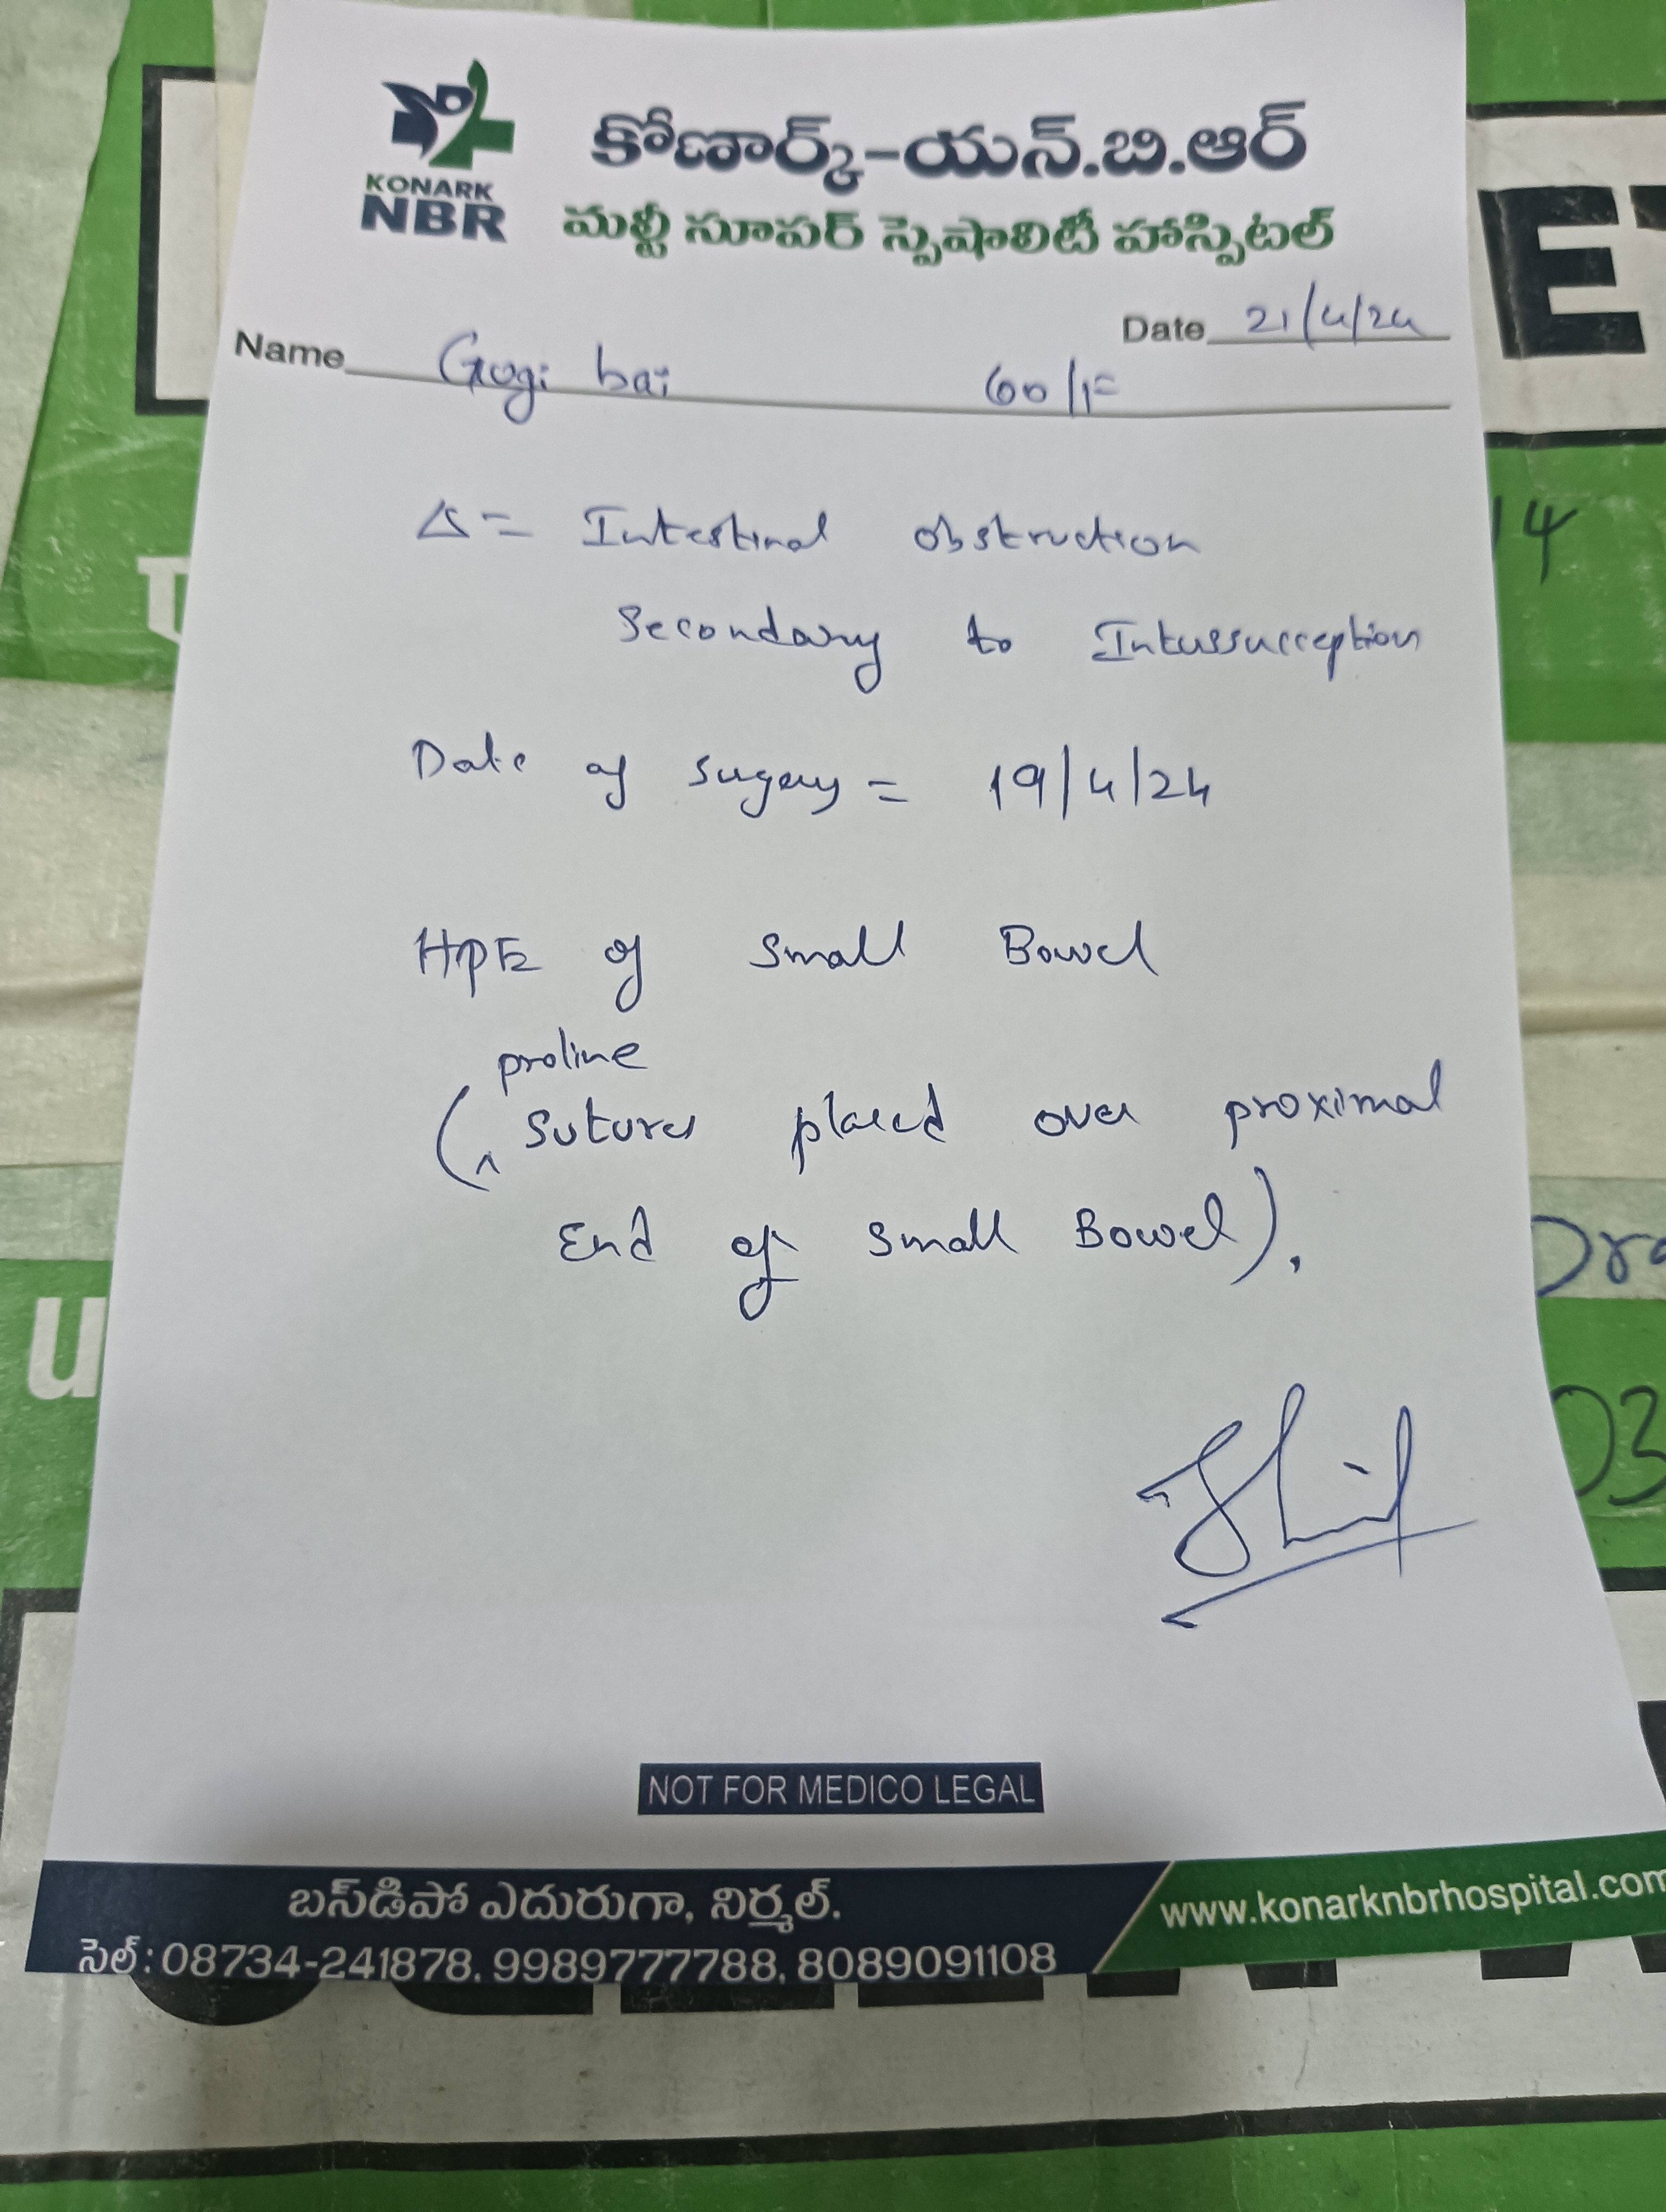 KONARK
NBR
కోణార్క్-యన్.బి.ఆర్
మల్టీ సూపర్ స్పెషాలిటీ హాస్పిటల్
Date 21/4/24
Name Gogi bai 60/F
Δ = Intestinal obstruction
Secondary to Intussucception
Date of sugery = 19/4/24
HPE of Small Bowel
proline
(^ Sutures placed over proximal
End of Small Bowel).
NOT FOR MEDICO LEGAL
బస్‌డిపో ఎదురుగా, నిర్మల్.
సెల్ : 08734-241878, 9989777788, 8089091108
www.konarknbrhospital.com
14
03
u